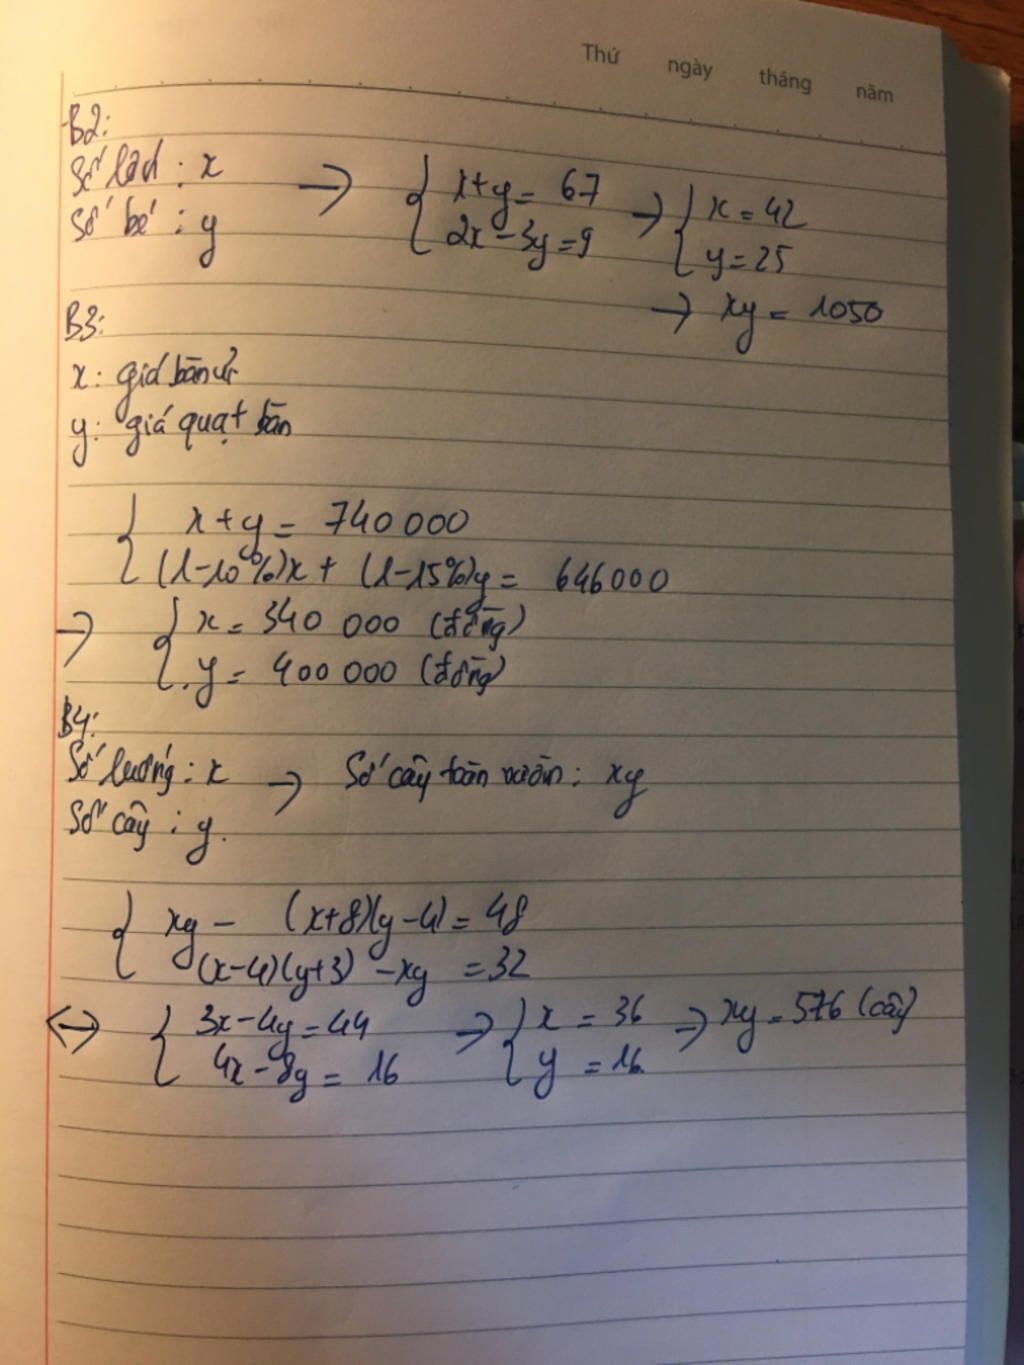 Thứ ngày tháng năm
B2:
Số lớn : x
Số bé : y
→ { x+y = 67
2x-3y=9
→ { x = 42
y = 25
→ xy = 1050
B3:
x: giá bàn ủi
y: giá quạt bàn
{ x+y = 740 000
(1-10%)x + (1-15%)y = 646000
→ { x = 340 000 (đồng)
y = 400 000 (đồng)
B4:
Số luống : x → Số cây toàn vườn : xy
Số cây : y.
{ xy - (x+8)(y-4) = 48
(x-4)(y+3) - xy = 32
<-> { 3x-4y = 44
4x-8y = 16
→ { x = 36
y = 16.
→ xy = 576 (cây)